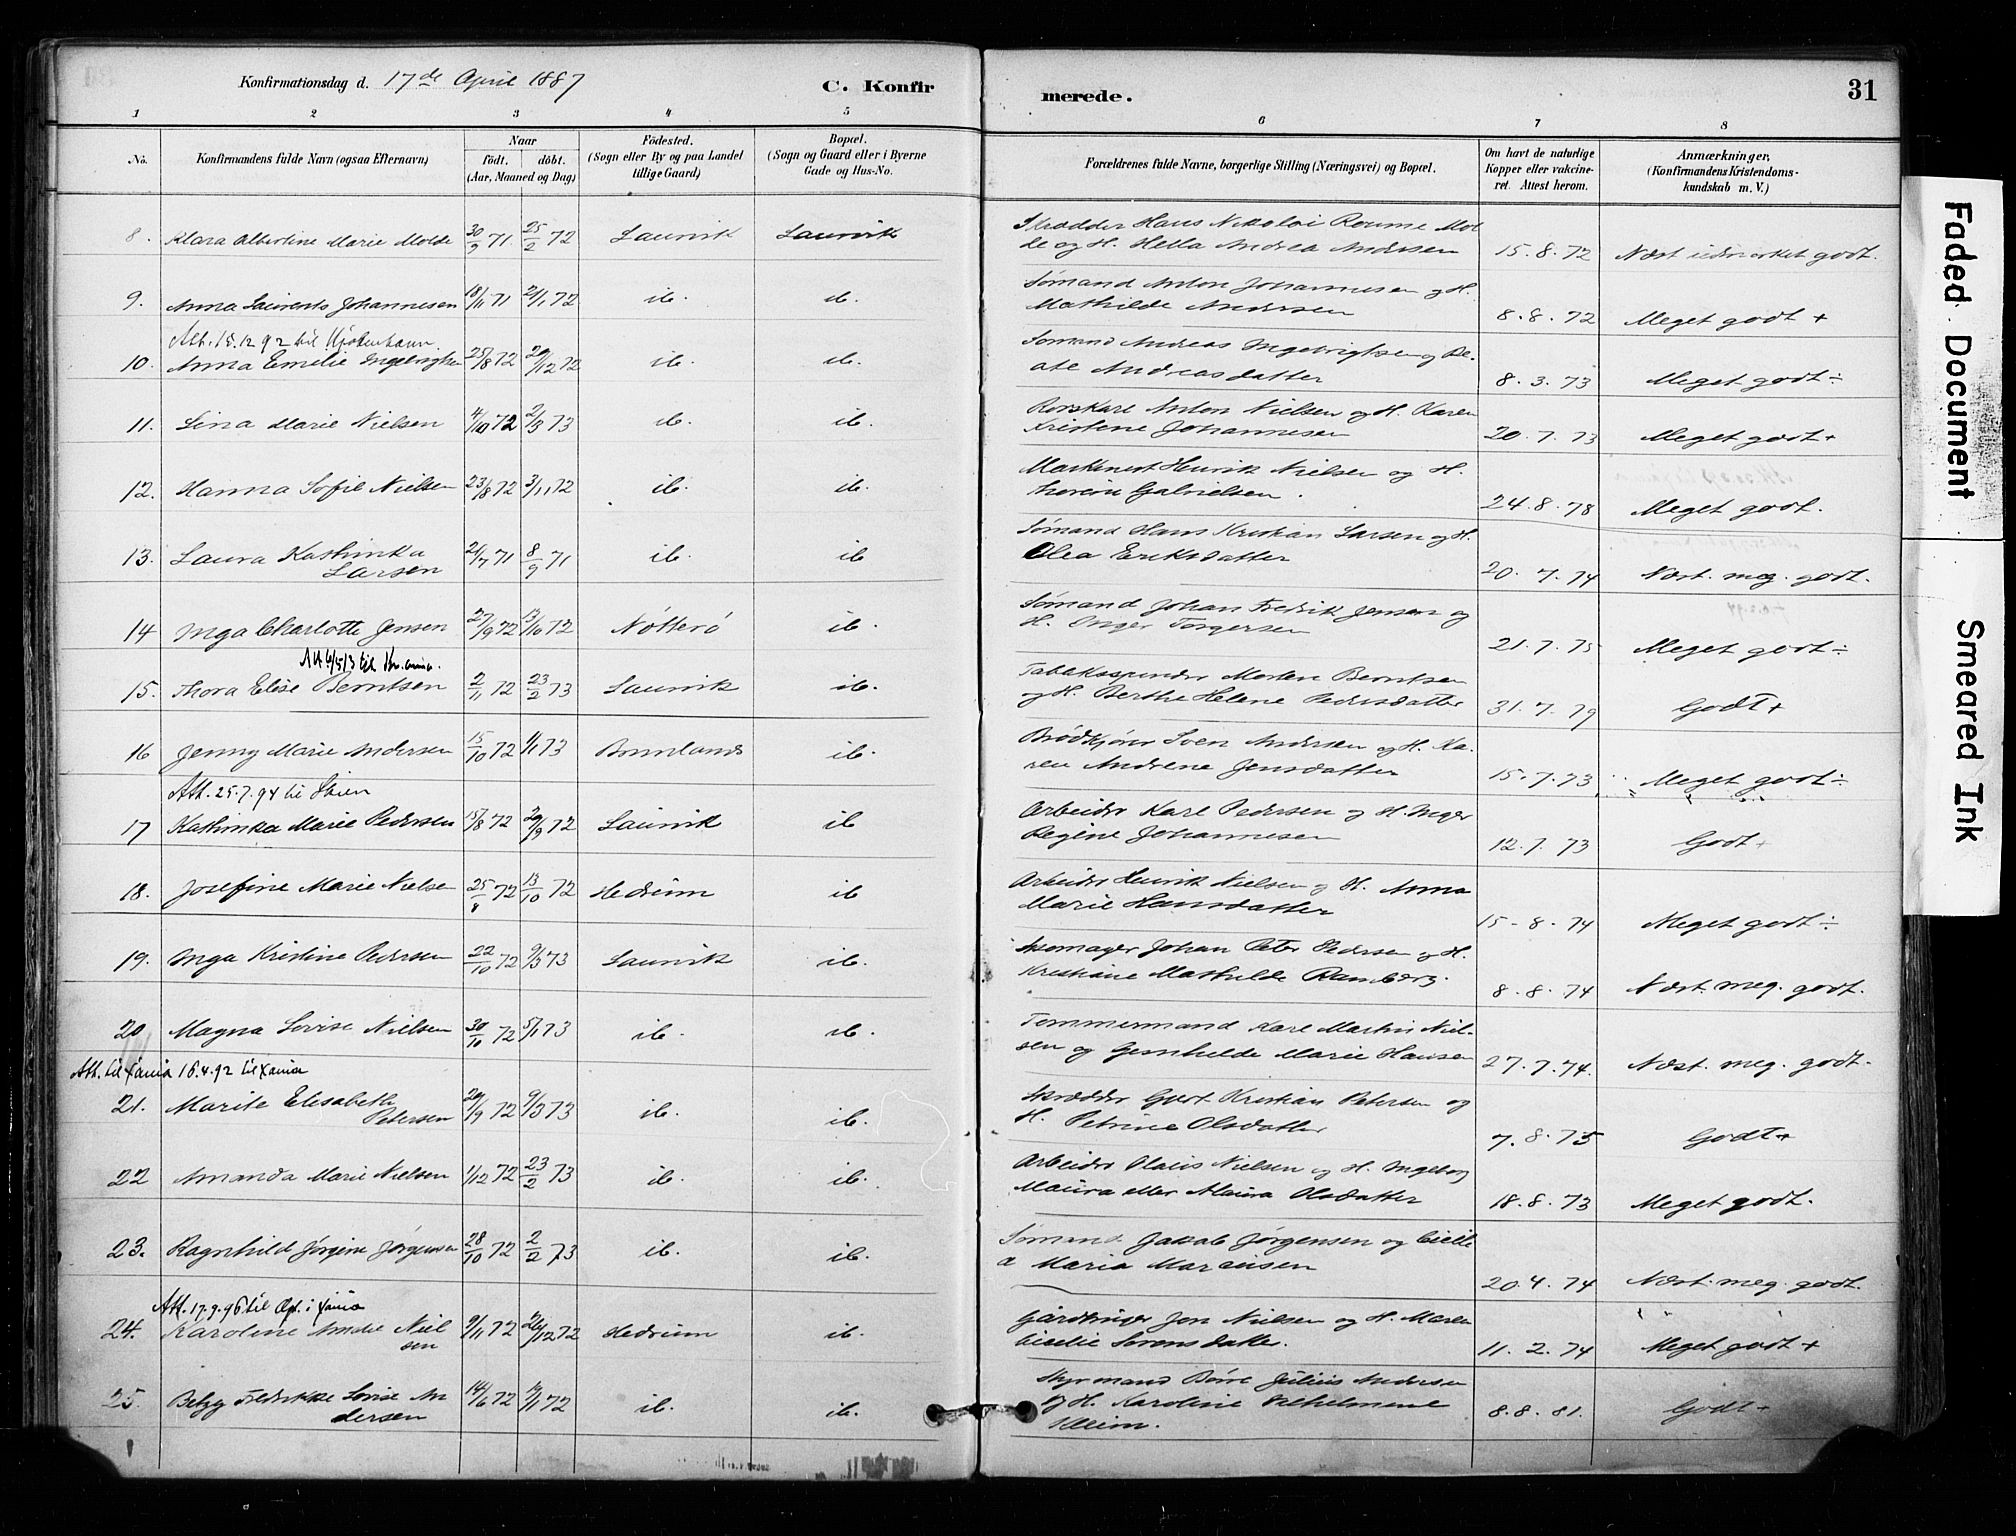 Konfirmationsdag d. 17de April 1887
C. Konfir
merede.
31
1 2 3 4 5 6 7 8
No. Konfirmandens fulde Navn (ogsaa Efternavn) Naar född. döbt. (Aar, Maaned og Dag)
Födested. (Sogn eller By og paa Landet tillige Gaard)
Bopæl. (Sogn og Gaard eller i Byerne Gade og Hus-No.
Forældrenes fulde Navne, borgerlige Stilling (Næringsvei) og Bopæl.
Om havt de naturlige Kopper eller vakcineret. Attest herom.
Anmærkninger, (Konfirmandens Kristendomskundskab m. V.)
8. Klara Albertine Marie Molde 30/9 71. 25/2 72 Laurvik Laurvik Skrædder Hans Nikolai Roume Mol
de og H. Hella Andrea Andersen 15.8.72 Næst udmærket godt.
9. Anna Laurents Johannesen 18/11 71 21/1 72 ib. ib. Sømand Anton Johannesen og H.
Mathilde Andersen 8.8.72 Meget godt +
Att. 15.12.92 til Kjøbenhavn.
10. Anna Emilie Ingebrigtsen 25/8 72 29/12 72 ib. ib. Sømand Andreas Ingebrigtsen og Be-
ate Andreasdatter 8.3.73 Meget godt ÷
11. Lina Marie Nielsen 4/10 72 2/3 73 ib. ib. Rorskarl Anton Nielsen og H. Karen
Kristene Johannesen 20.7.73 Meget godt +
12. Hanna Sofie Nielsen 23/8 72 3/11 72 ib. ib. Maskinest Henrik Nielsen og H.
Gabrielsen. 24.8.78 Meget godt.
13. Laura Kathinka Larsen 21/7 71 8/9 71 ib. ib Sømand Hans Kristian Larsen og H.
Olea Eriksdatter 20.7.74 Næst. meg. godt.
14 Inga Charlotte Jensen 27/9 72 13/10 72 Nötterö ib. Sømand Johan Fredrik Jensen og
H. Inger Torgersen 21.7.75 Meget godt ÷
Att 6/5 13 til Kr.ania.
15. Thora Elise Berntsen 2/11 72 23/2 73 Laurvik ib. Tabaksspinder Morten Berntsen
og H. Berthe Helene Pedersdatter 31.7.79 Godt +
16 Jenny Marie Andersen 15/10 72 1/1 73 Brunlanes ib. Brödkjörer Sven Andersen og H. Ka-
ren Andrene Jensdatter 15.7.73 Meget godt ÷
Att. 25.7.94 til Skien
17 Kathinka Marie Pedersen 15/8 72 29/9 72 Laurvik ib Arbeider Karl Pedersen og H. Inger
Regine Johannesen 12.7.73 Godt +
18. Josefine Marie Nielsen 25/8 72 13/10 72 Hedrum ib Arbeider Henrik Nielsen og H. Anna
Marie Hansdatter 15-8.74 Meget godt ÷
19. Inga Kristine Pedersen 22/10 72 9/3 73 Laurvik ib. Skomager Johan Peter Pedersen og H.
Kristiane Mathilde Ramberg. 8.8.74 Næst. meg. godt.
20. Magna Lovise Nielsen 30/10 72 5/1 73 ib. ib. Tømmermand Karl Martin Niel-
sen og Gunhilde Marie Hansen 27.7.74. Næst. meg. godt.
Att. til Xania 16.4.92 til Xania
21. Marite Elisabeth Petersen 29/9 72 9/3 73 ib. ib. Skrædder Gjert Kristian Petersen og
H. Petrine Olsdatter 7.8.75 Godt +
22 Amanda Marie Nielsen 1/12 72 23/2 73 ib. ib. Arbeider Olaus Nielsen og H. Ingeborg
Maura eller Alaura Olsdatter 18.8.73 Meget godt.
23. Ragnhild Jørgine Jørgensen 28/10 72 2/2 73 ib. ib. Sømand Jakob Jørgensen og Cicili
a Maria Marensen 20.4.74 Næst. meg. godt.
Att. 17.9.96 til Opt. i Xania
24. Karoline Amalie Nielsen 9/11 72 26/12 72 Hedrum ib. Gårdbruger Jon Nielsen og H. Maren
Cicilie Sorensdatter. 11.2.74 Meget godt +
25. Betzy Fredrikke Lovise Andersen 14/6 72 ib. ib. Styrmand Börre Julius Andersen
og H. Karoline Vilhelmine
Kleim. 8.8.81. Godt +
Faded Document
Smeared Ink